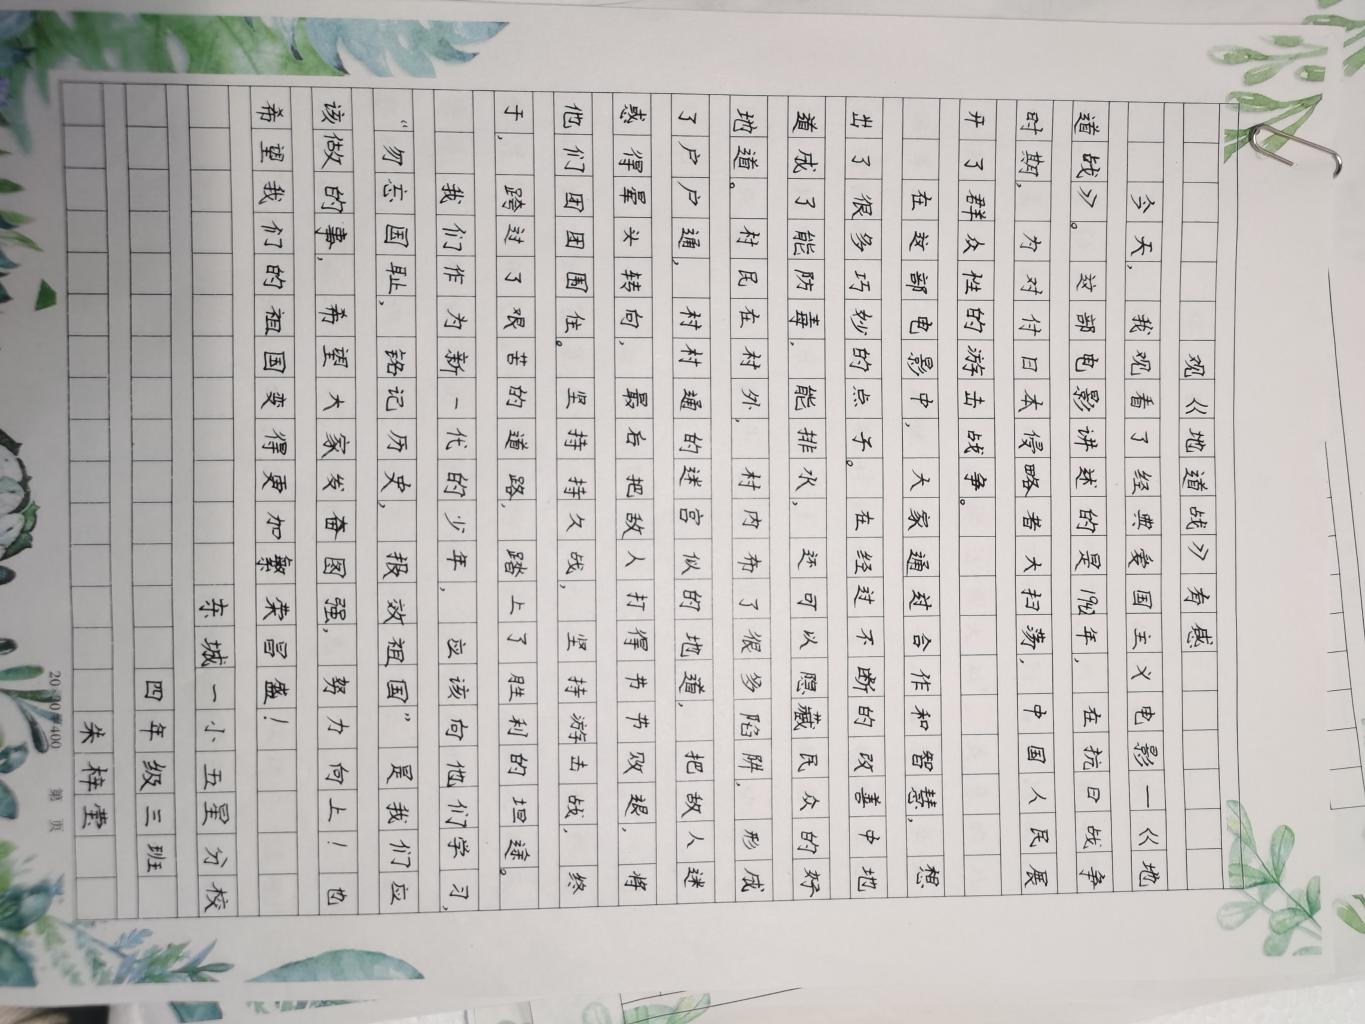 观《地道战》有感
今天，我观看了经典爱国主义电影一《地
道战》。这部电影讲述的是1942年，在抗日战争
时期，为对付日本侵略者大扫荡，中国人民展
开了群众性的游击战争。
在这部电影中，大家通过合作和智慧，想
出了很多巧妙的点子。在经过不断的改善中地
道成了能防毒，能排水，还可以隐藏民众的好
地道。村民在村外，村内布了很多陷阱，形成
了户户通，村村通的迷宫似的地道，把敌人迷
惑得晕头转向，最后把敌人打得节节败退，将
他们团团围住。坚持持久战，坚持游击战，终
于，跨过了艰苦的道路，踏上了胜利的坦途。
我们作为新一代的少年，应该向他们学习，
“勿忘国耻，铭记历史，报效祖国”是我们应
该做的事，希望大家发奋图强，努力向上！也
希望我们的祖国变得更加繁荣昌盛！
东城一小五星分校
四年级三班
朱梓莹
20×20=400 第 页